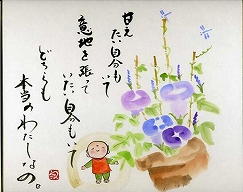 甘えたい
自分もいて
意地を張って
いたい自分もいて
どちらも
本当のわたしなの。